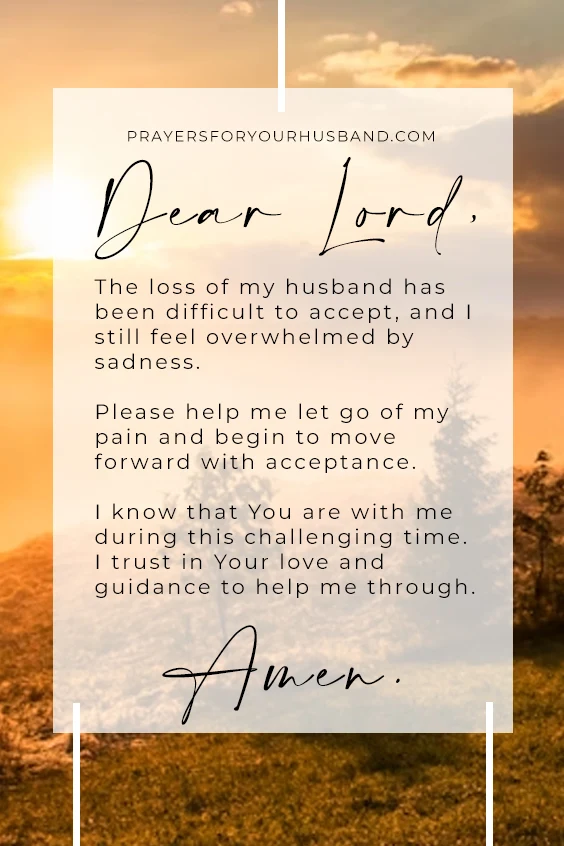 PRAYERSFORYOURHUSBAND.COM
Dear Lord,
The loss of my husband has
been difficult to accept, and I
still feel overwhelmed by
sadness.
Please help me let go of my
pain and begin to move
forward with acceptance.
I know that You are with me
during this challenging time.
I trust in Your love and
guidance to help me through.
Amen.